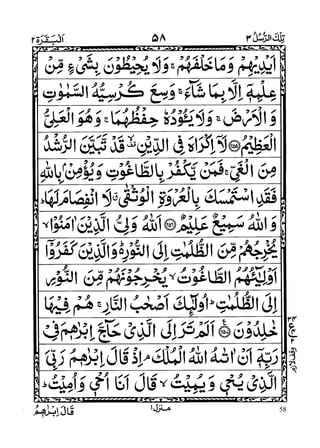 تِلْكَ الرُّسُلُ ٣ ٥٨ اَلْبَقَرَة ٢
اَيْدِيْهِمْ وَمَا خَلْفَهُمْ ۚ وَلَا يُحِيْطُوْنَ بِشَيْءٍ مِّنْ
عِلْمِهٖۤ اِلَّا بِمَا شَآءَ ۚ وَسِعَ كُرْسِيُّهُ السَّمٰوٰتِ
وَالْاَرْضَ ۚ وَلَا يَـُٔوْدُهٗ حِفْظُهُمَا ۚ وَهُوَ الْعَلِيُّ
الْعَظِيْمُ ﴿٢٥٥﴾ لَاۤ اِكْرَاهَ فِي الدِّيْنِ ۙ قَدْ تَّبَيَّنَ الرُّشْدُ
مِنَ الْغَيِّ ۚ فَمَنْ يَّكْفُرْ بِالطَّاغُوْتِ وَيُؤْمِنْۢ بِاللّٰهِ
فَقَدِ اسْتَمْسَكَ بِالْعُرْوَةِ الْوُثْقٰى ۗ لَا انْفِصَامَ لَهَا ؕ
وَاللّٰهُ سَمِيْعٌ عَلِيْمٌ ﴿٢٥٦﴾ اَللّٰهُ وَلِيُّ الَّذِيْنَ اٰمَنُوْا ۙ
يُخْرِجُهُمْ مِّنَ الظُّلُمٰتِ اِلَى النُّوْرِ ؕ وَالَّذِيْنَ كَفَرُوْۤا
اَوْلِيٰٓـُٔهُمُ الطَّاغُوْتُ ۙ يُخْرِجُوْنَهُمْ مِّنَ النُّوْرِ
اِلَى الظُّلُمٰتِ ؕ اُولٰٓئِكَ اَصْحٰبُ النَّارِ ۚ هُمْ فِيْهَا
خٰلِدُوْنَ ﴿٢٥٧﴾ اَلَمْ تَرَ اِلَى الَّذِيْ حَآجَّ اِبْرٰهٖمَ فِيْ
رَبِّهٖۤ اَنْ اٰتٰىهُ اللّٰهُ الْمُلْكَ ۘ اِذْ قَالَ اِبْرٰهٖمُ رَبِّيَ
الَّذِيْ يُحْيٖ وَيُمِيْتُ ۙ قَالَ اَنَا اُحْيٖ وَاُمِيْتُ ؕ
قَالَ اِبْرٰهٖمُ منزل ١ 58